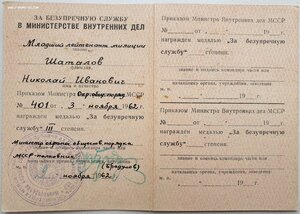 ЗА БЕЗУПРЕЧНУЮ СЛУЖБУ
В МИНИСТЕРСТВЕ ВНУТРЕННИХ ДЕЛ
Младший лейтенант милиции
звание
Шаталов
фамилия,
Николай Иванович
имя и отчество
Приказом Министра
№ 401 от „ 3 “ ноября 1962 г.
награжден медалью „За безупречную
службу“ III степени.
Министр охраны обществ. порядка
МССР полковник
ноября 1962 г.
Приказом Министра Внутренних дел МССР
№ от 19 г.
награжден медалью „За безупречную
службу“ степени.
звание и подпись командира части или
19 г.
Приказом Министра Внутренних дел МССР
№ от 19 г.
награжден медалью „За безупречную
службу“ степени.
19 г.